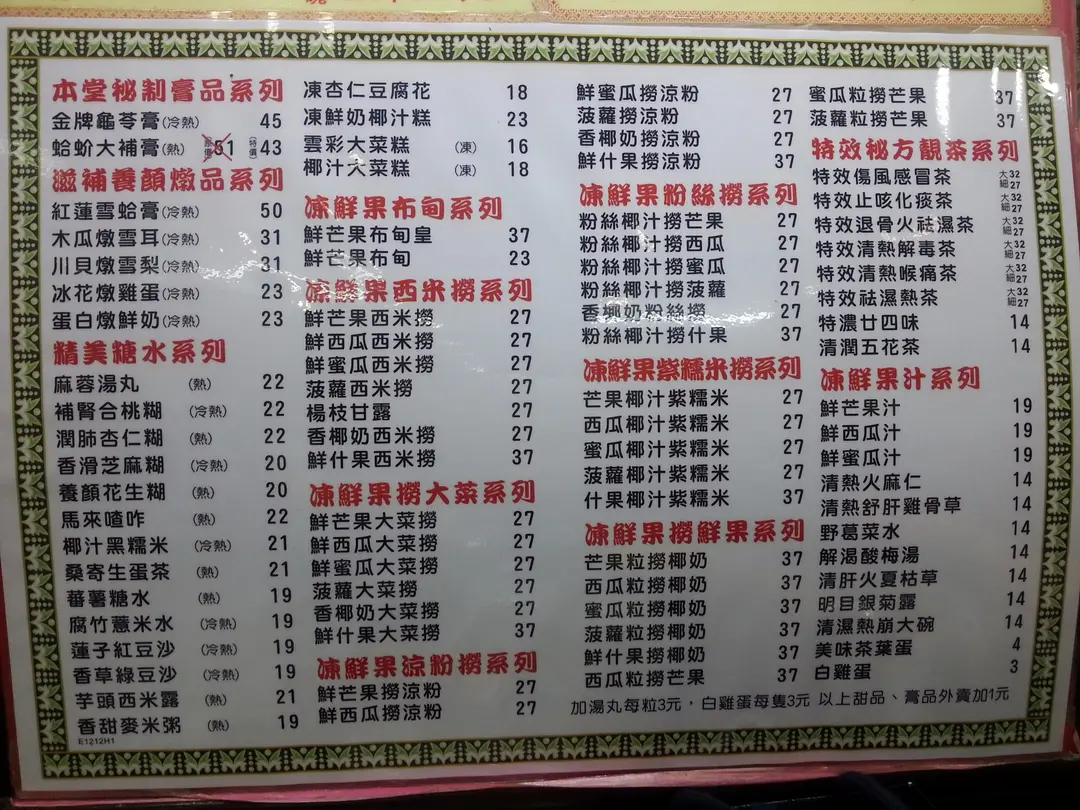 本堂秘制膏品系列
金牌龜苓膏(冷熱) 45
蛤蚧大補膏(熱) 原價51 特價43
滋補養顏燉品系列
紅蓮雪蛤膏(冷熱) 50
木瓜燉雪耳(冷熱) 31
川貝燉雪梨(冷熱) 31
冰花燉雞蛋(冷熱) 23
蛋白燉鮮奶(冷熱) 23
精美糖水系列
麻蓉湯丸 (熱) 22
補腎合桃糊 (冷熱) 22
潤肺杏仁糊 (熱) 22
香滑芝麻糊 (冷熱) 20
養顏花生糊 (熱) 20
馬來喳咋 (熱) 22
椰汁黑糯米 (冷熱) 21
桑寄生蛋茶 (熱) 21
蕃薯糖水 (熱) 19
腐竹薏米水 (冷熱) 19
蓮子紅豆沙 (冷熱) 19
香草綠豆沙 (冷熱) 19
芋頭西米露 (熱) 21
香甜麥米粥 (熱) 19
E1212H1
凍杏仁豆腐花 18
凍鮮奶椰汁糕 23
雲彩大菜糕 (凍) 16
椰汁大菜糕 (凍) 18
凍鮮果布甸系列
鮮芒果布甸皇 37
鮮芒果布甸 23
凍鮮果西米撈系列
鮮芒果西米撈 27
鮮西瓜西米撈 27
鮮蜜瓜西米撈 27
菠蘿西米撈 27
楊枝甘露 27
香椰奶西米撈 27
鮮什果西米撈 37
凍鮮果撈大菜系列
鮮芒果大菜撈 27
鮮西瓜大菜撈 27
鮮蜜瓜大菜撈 27
菠蘿大菜撈 27
香椰奶大菜撈 27
鮮什果大菜撈 37
凍鮮果涼粉撈系列
鮮芒果撈涼粉 27
鮮西瓜撈涼粉 27
鮮蜜瓜撈涼粉 27
菠蘿撈涼粉 27
香椰奶撈涼粉 27
鮮什果撈涼粉 37
凍鮮果粉絲撈系列
粉絲椰汁撈芒果 27
粉絲椰汁撈西瓜 27
粉絲椰汁撈蜜瓜 27
粉絲椰汁撈菠蘿 27
香椰奶粉絲撈 27
粉絲椰汁撈什果 37
凍鮮果紫糯米撈系列
芒果椰汁紫糯米 27
西瓜椰汁紫糯米 27
蜜瓜椰汁紫糯米 27
菠蘿椰汁紫糯米 27
什果椰汁紫糯米 37
凍鮮果撈鮮果系列
芒果粒撈椰奶 37
西瓜粒撈椰奶 37
蜜瓜粒撈椰奶 37
菠蘿粒撈椰奶 37
鮮什果撈椰奶 37
西瓜粒撈芒果 37
蜜瓜粒撈芒果 37
菠蘿粒撈芒果 37
特效秘方靚茶系列
特效傷風感冒茶 大32 細27
特效止咳化痰茶 大32 細27
特效退骨火祛濕茶 大32 細27
特效清熱解毒茶 大32 細27
特效清熱喉痛茶 大32 細27
特效祛濕熱茶 大32 細27
特濃廿四味 14
清潤五花茶 14
凍鮮果汁系列
鮮芒果汁 19
鮮西瓜汁 19
鮮蜜瓜汁 19
清熱火麻仁 14
清熱舒肝雞骨草 14
野葛菜水 14
解渴酸梅湯 14
清肝火夏枯草 14
明目銀菊露 14
清濕熱崩大碗 14
美味茶葉蛋 4
白雞蛋 3
加湯丸每粒3元，白雞蛋每隻3元 以上甜品、膏品外賣加1元